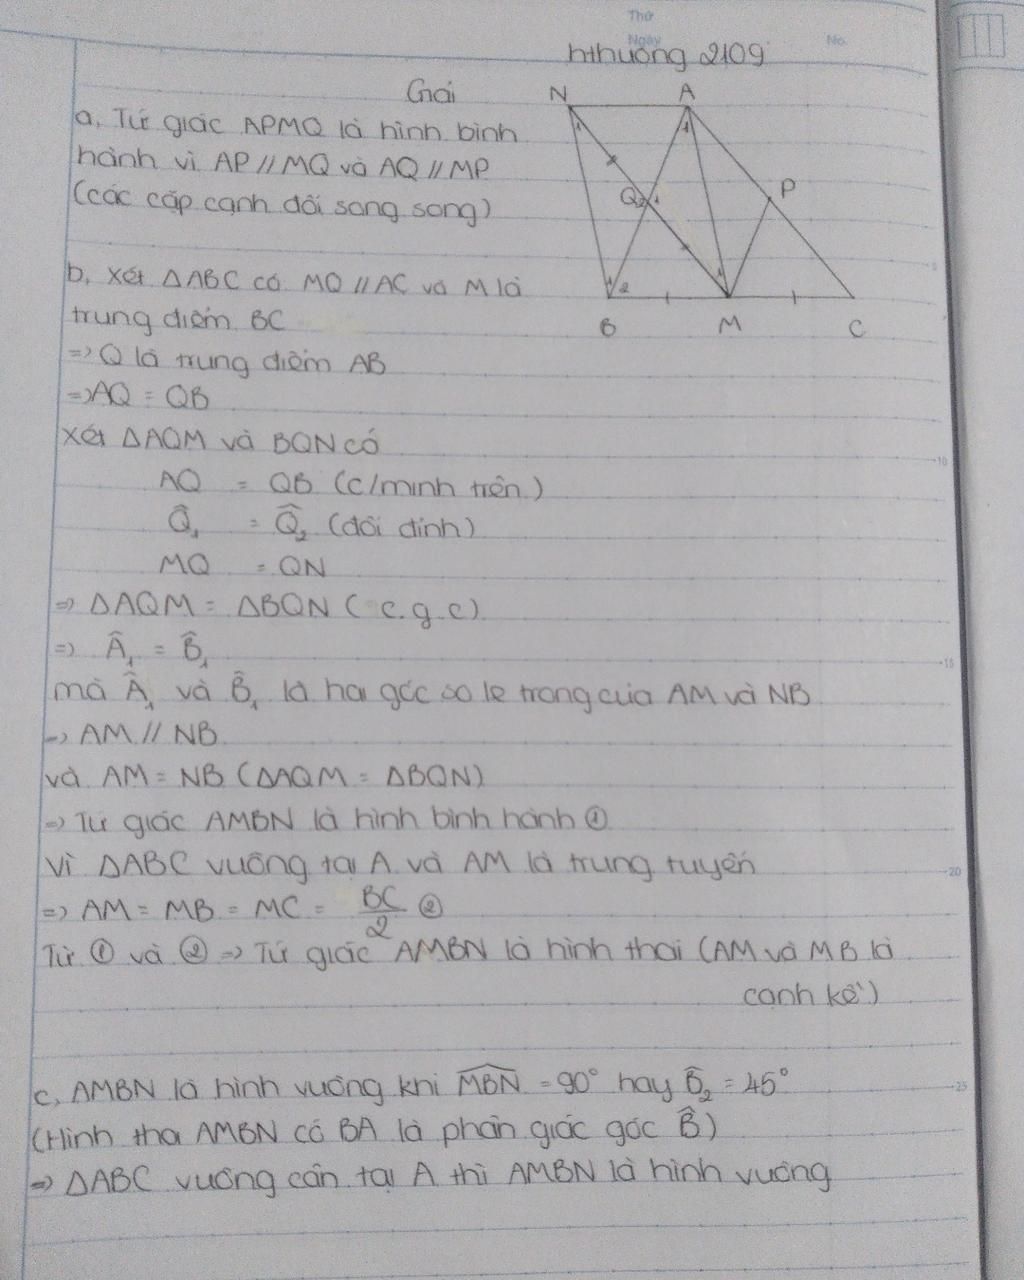 Thứ
Ngày
No.
hthuong 2109
Giải
N A
a, Tứ giác APMQ là hình bình
hành vì AP // MQ và AQ // MP
(các cặp cạnh đối song song)
Q P
B M C
b, Xét ΔABC có MQ // AC và M là
trung điểm BC
=> Q là trung điểm AB
=> AQ = QB
Xét ΔAQM và BQN có
AQ = QB (c/minh trên)
Q̂₁ = Q̂₂ (đối đỉnh)
MQ = QN
=> ΔAQM = ΔBQN (c.g.c)
=> Â₁ = B̂₁
mà Â₁ và B̂₁ là hai góc so le trong của AM và NB
=> AM // NB
và AM = NB (ΔAQM = ΔBQN)
=> Tứ giác AMBN là hình bình hành ①
Vì ΔABC vuông tại A và AM là trung tuyến
=> AM = MB = MC = BC/2 ②
Từ ① và ② => Tứ giác AMBN là hình thoi (AM và MB là
cạnh kề)
c, AMBN là hình vuông khi M̂BN = 90° hay B̂₂ = 45°
(Hình thoi AMBN có BA là phân giác góc B̂)
=> ΔABC vuông cân tại A thì AMBN là hình vuông